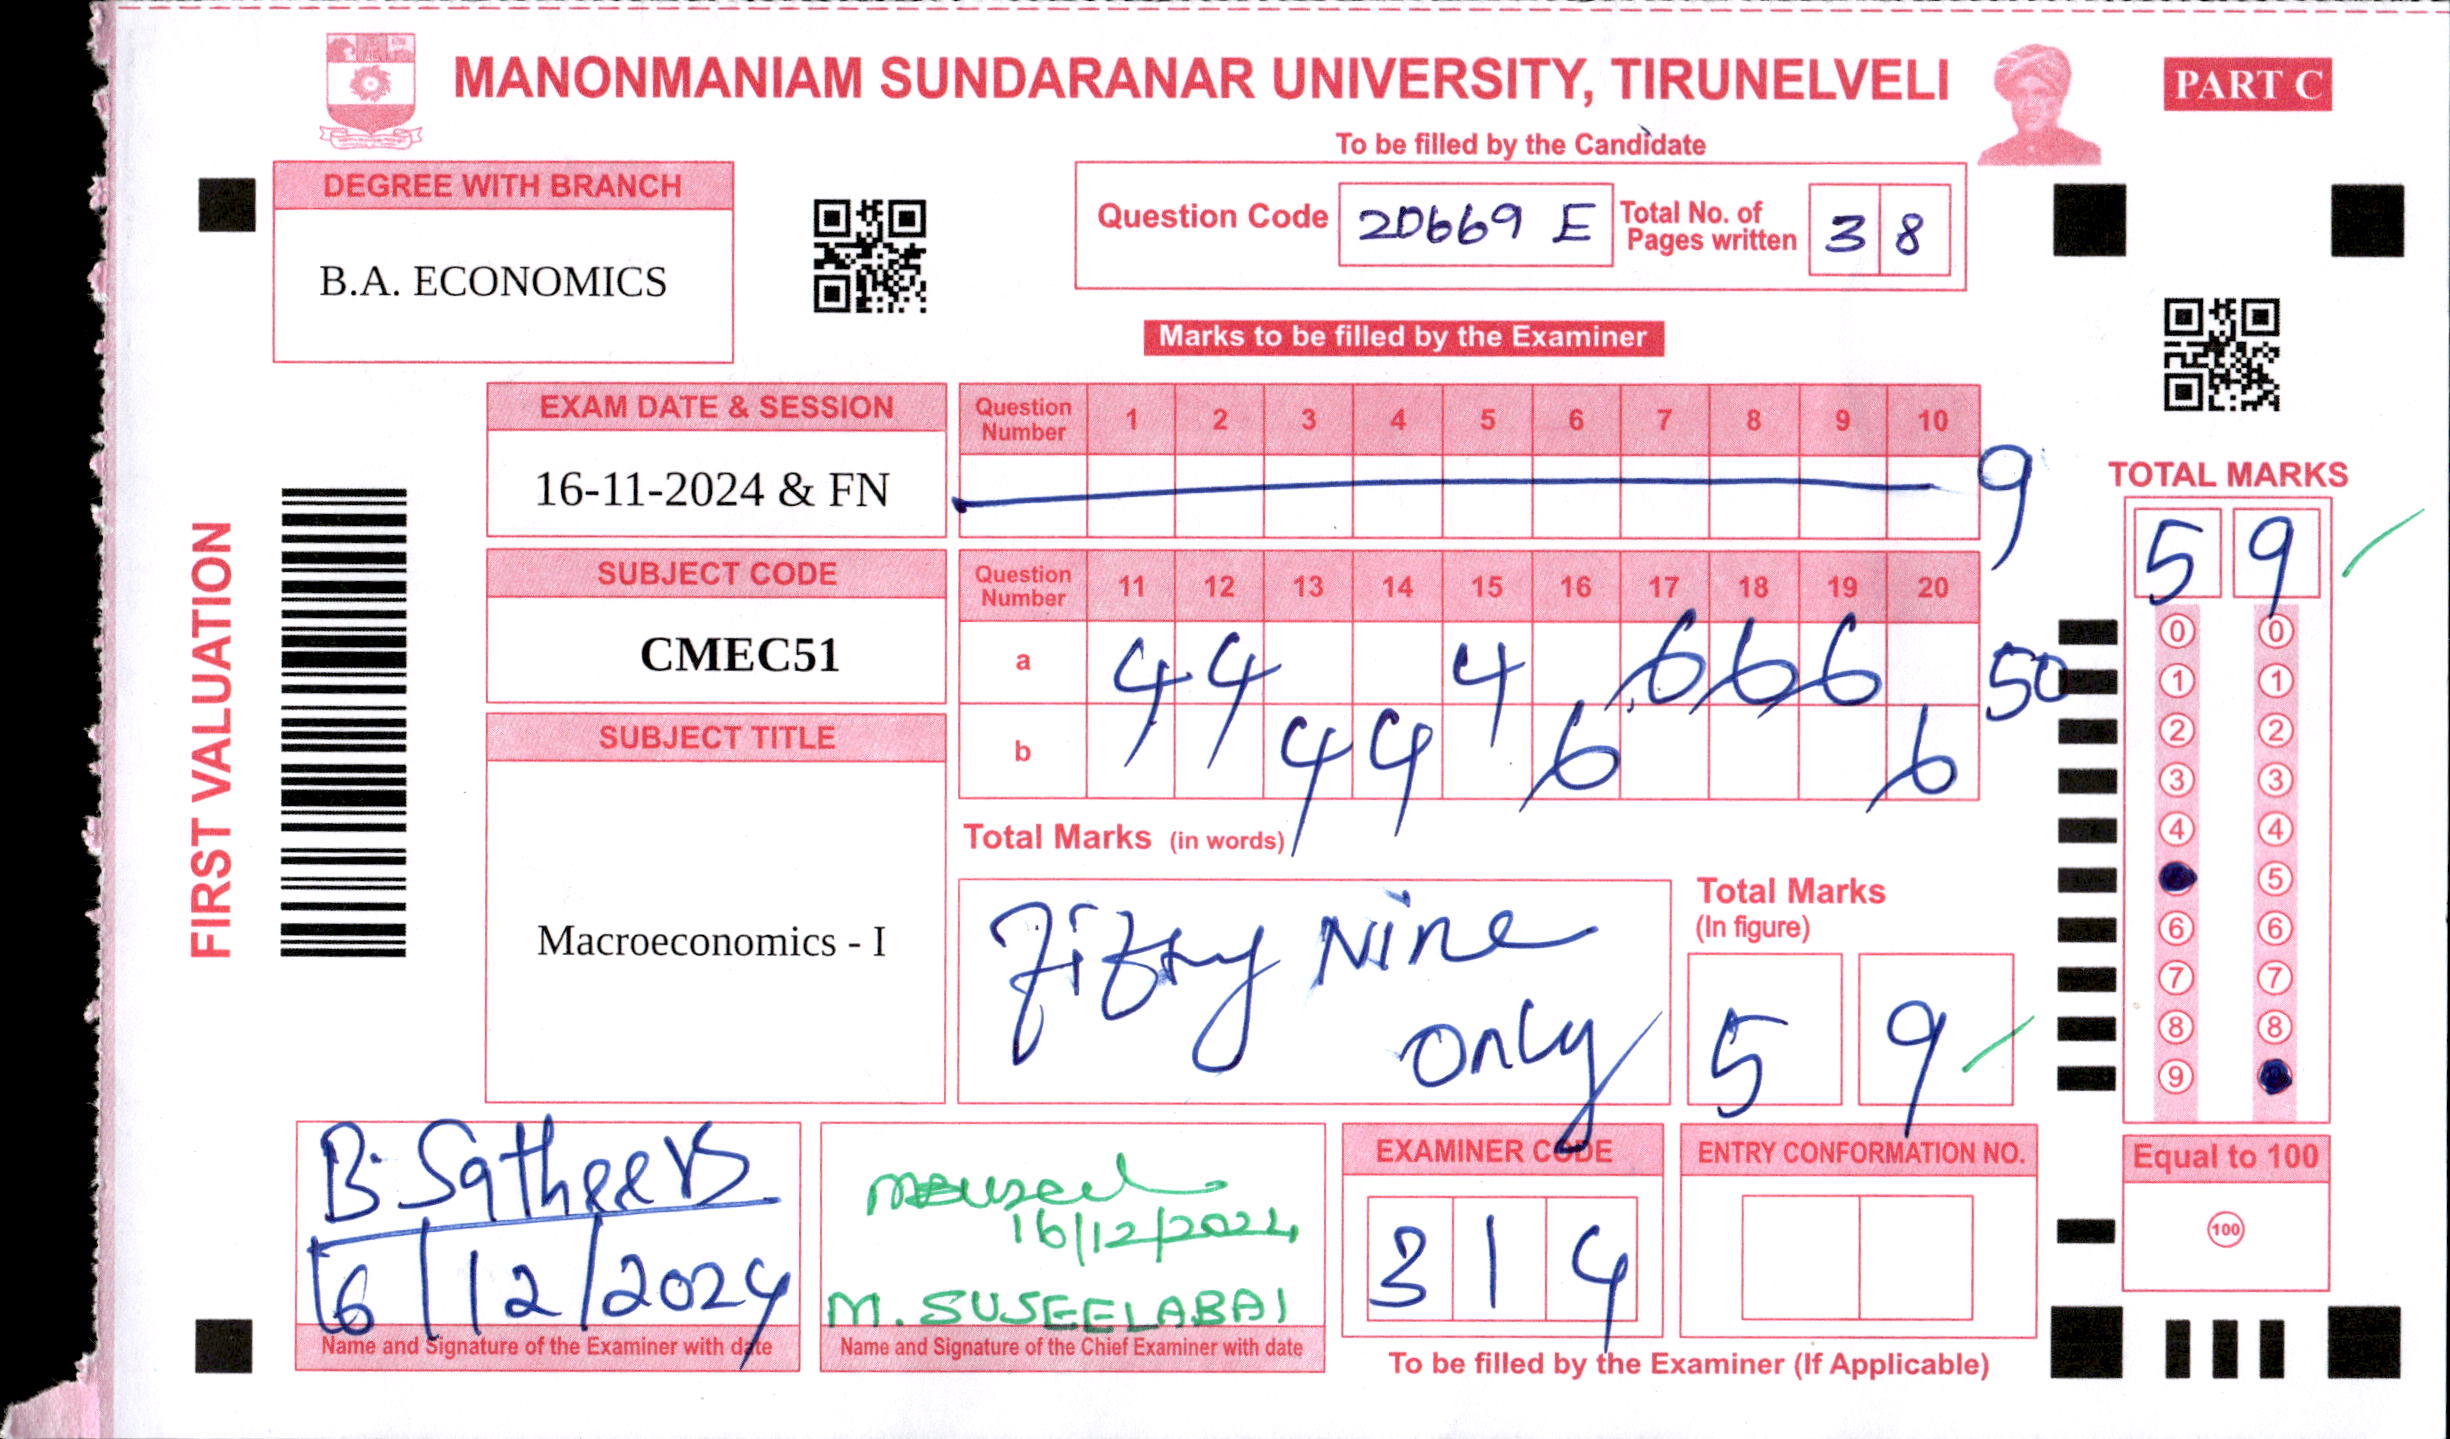 MANONMANIAM SUNDARANAR UNIVERSITY, TIRUNELVELI
PART C
To be filled by the Candidate
DEGREE WITH BRANCH
B.A. ECONOMICS
Question Code 20669 E Total No. of Pages written 3 8
Marks to be filled by the Examiner
FIRST VALUATION
EXAM DATE & SESSION
16-11-2024 & FN
SUBJECT CODE
CMEC51
SUBJECT TITLE
Macroeconomics - I
Question Number 1 2 3 4 5 6 7 8 9 10
9
Question Number 11 12 13 14 15 16 17 18 19 20
a 4 4 4 6 6 6 50
b 4 4 6 6
Total Marks (in words)
Fifty Nine
only
Total Marks
(In figure)
5 9
TOTAL MARKS
5 9
0 0
1 1
2 2
3 3
4 4
5
6 6
7 7
8 8
9
Equal to 100
100
B. Satheesh
16/12/2024
Name and Signature of the Examiner with date
16/12/2024
M. SUSEELABAI
Name and Signature of the Chief Examiner with date
EXAMINER CODE
3 1 4
ENTRY CONFORMATION NO.
To be filled by the Examiner (If Applicable)